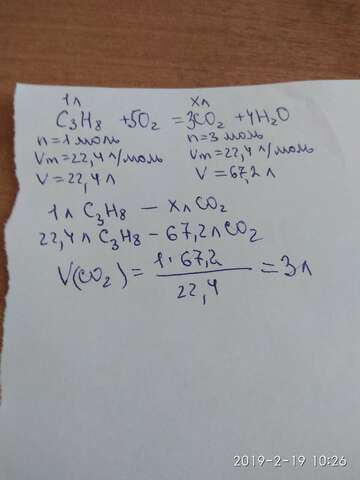 1л хл
C₃H₈ +5O₂ = 3CO₂ +4H₂O
n=1 моль n=3 моль
Vm=22,4 л/моль Vm=22,4 л/моль
V=22,4 л V=67,2 л
1л C₃H₈ — хл CO₂
22,4л C₃H₈ – 67,2л CO₂
V(CO₂) = 1·67,2 / 22,4 = 3л
2019-2-19 10:26